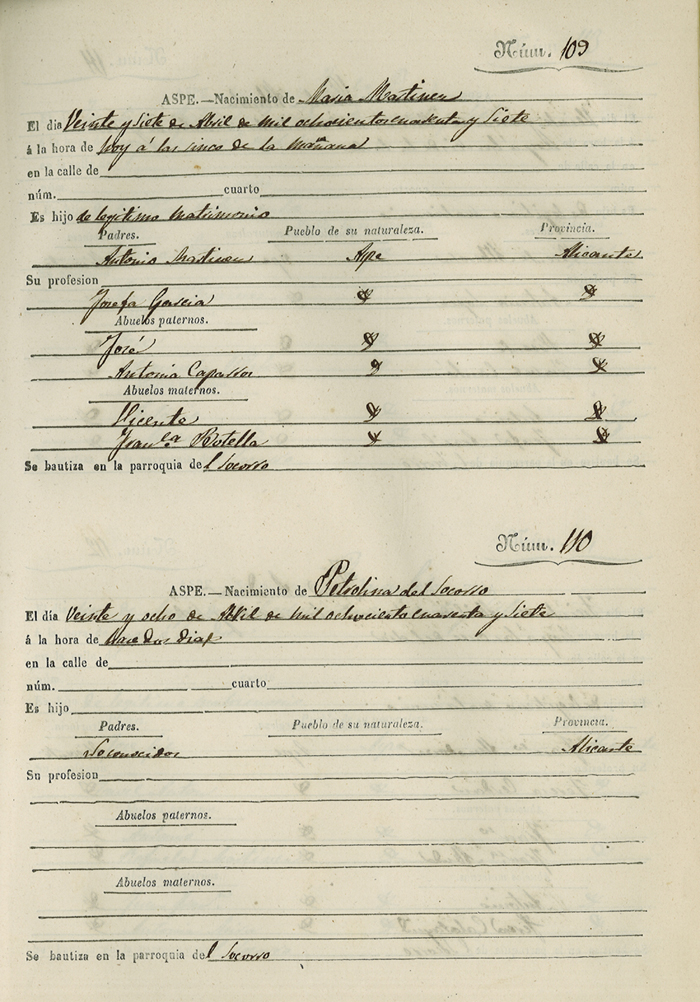 Núm. 109
ASPE.—Nacimiento de Maria Martinez
El dia Veinte y siete de Abril de mil ochocientos cuarenta y siete
á la hora de hoy á las cinco de la mañana
en la calle de
núm. cuarto
Es hijo de legitimo matrimonio
Padres. Pueblo de su naturaleza. Provincia.
Antonio Martinez Aspe Alicante
Su profesion
Josefa Garcia
Abuelos paternos.
José
Antonia
Abuelos maternos.
Vicente
Fran.ca Botella
Se bautiza en la parroquia del Socorro
Núm. 110
ASPE.—Nacimiento de Petrolina del Socorro
El día Veinte y ocho de Abril de mil ochocientos cuarenta y siete
á la hora de hace dos dias
en la calle de
núm. cuarto
Es hijo
Padres. Pueblo de su naturaleza. Provincia.
Alicante
Su profesion
Abuelos paternos.
Abuelos maternos.
Se bautiza en la parroquia del Socorro